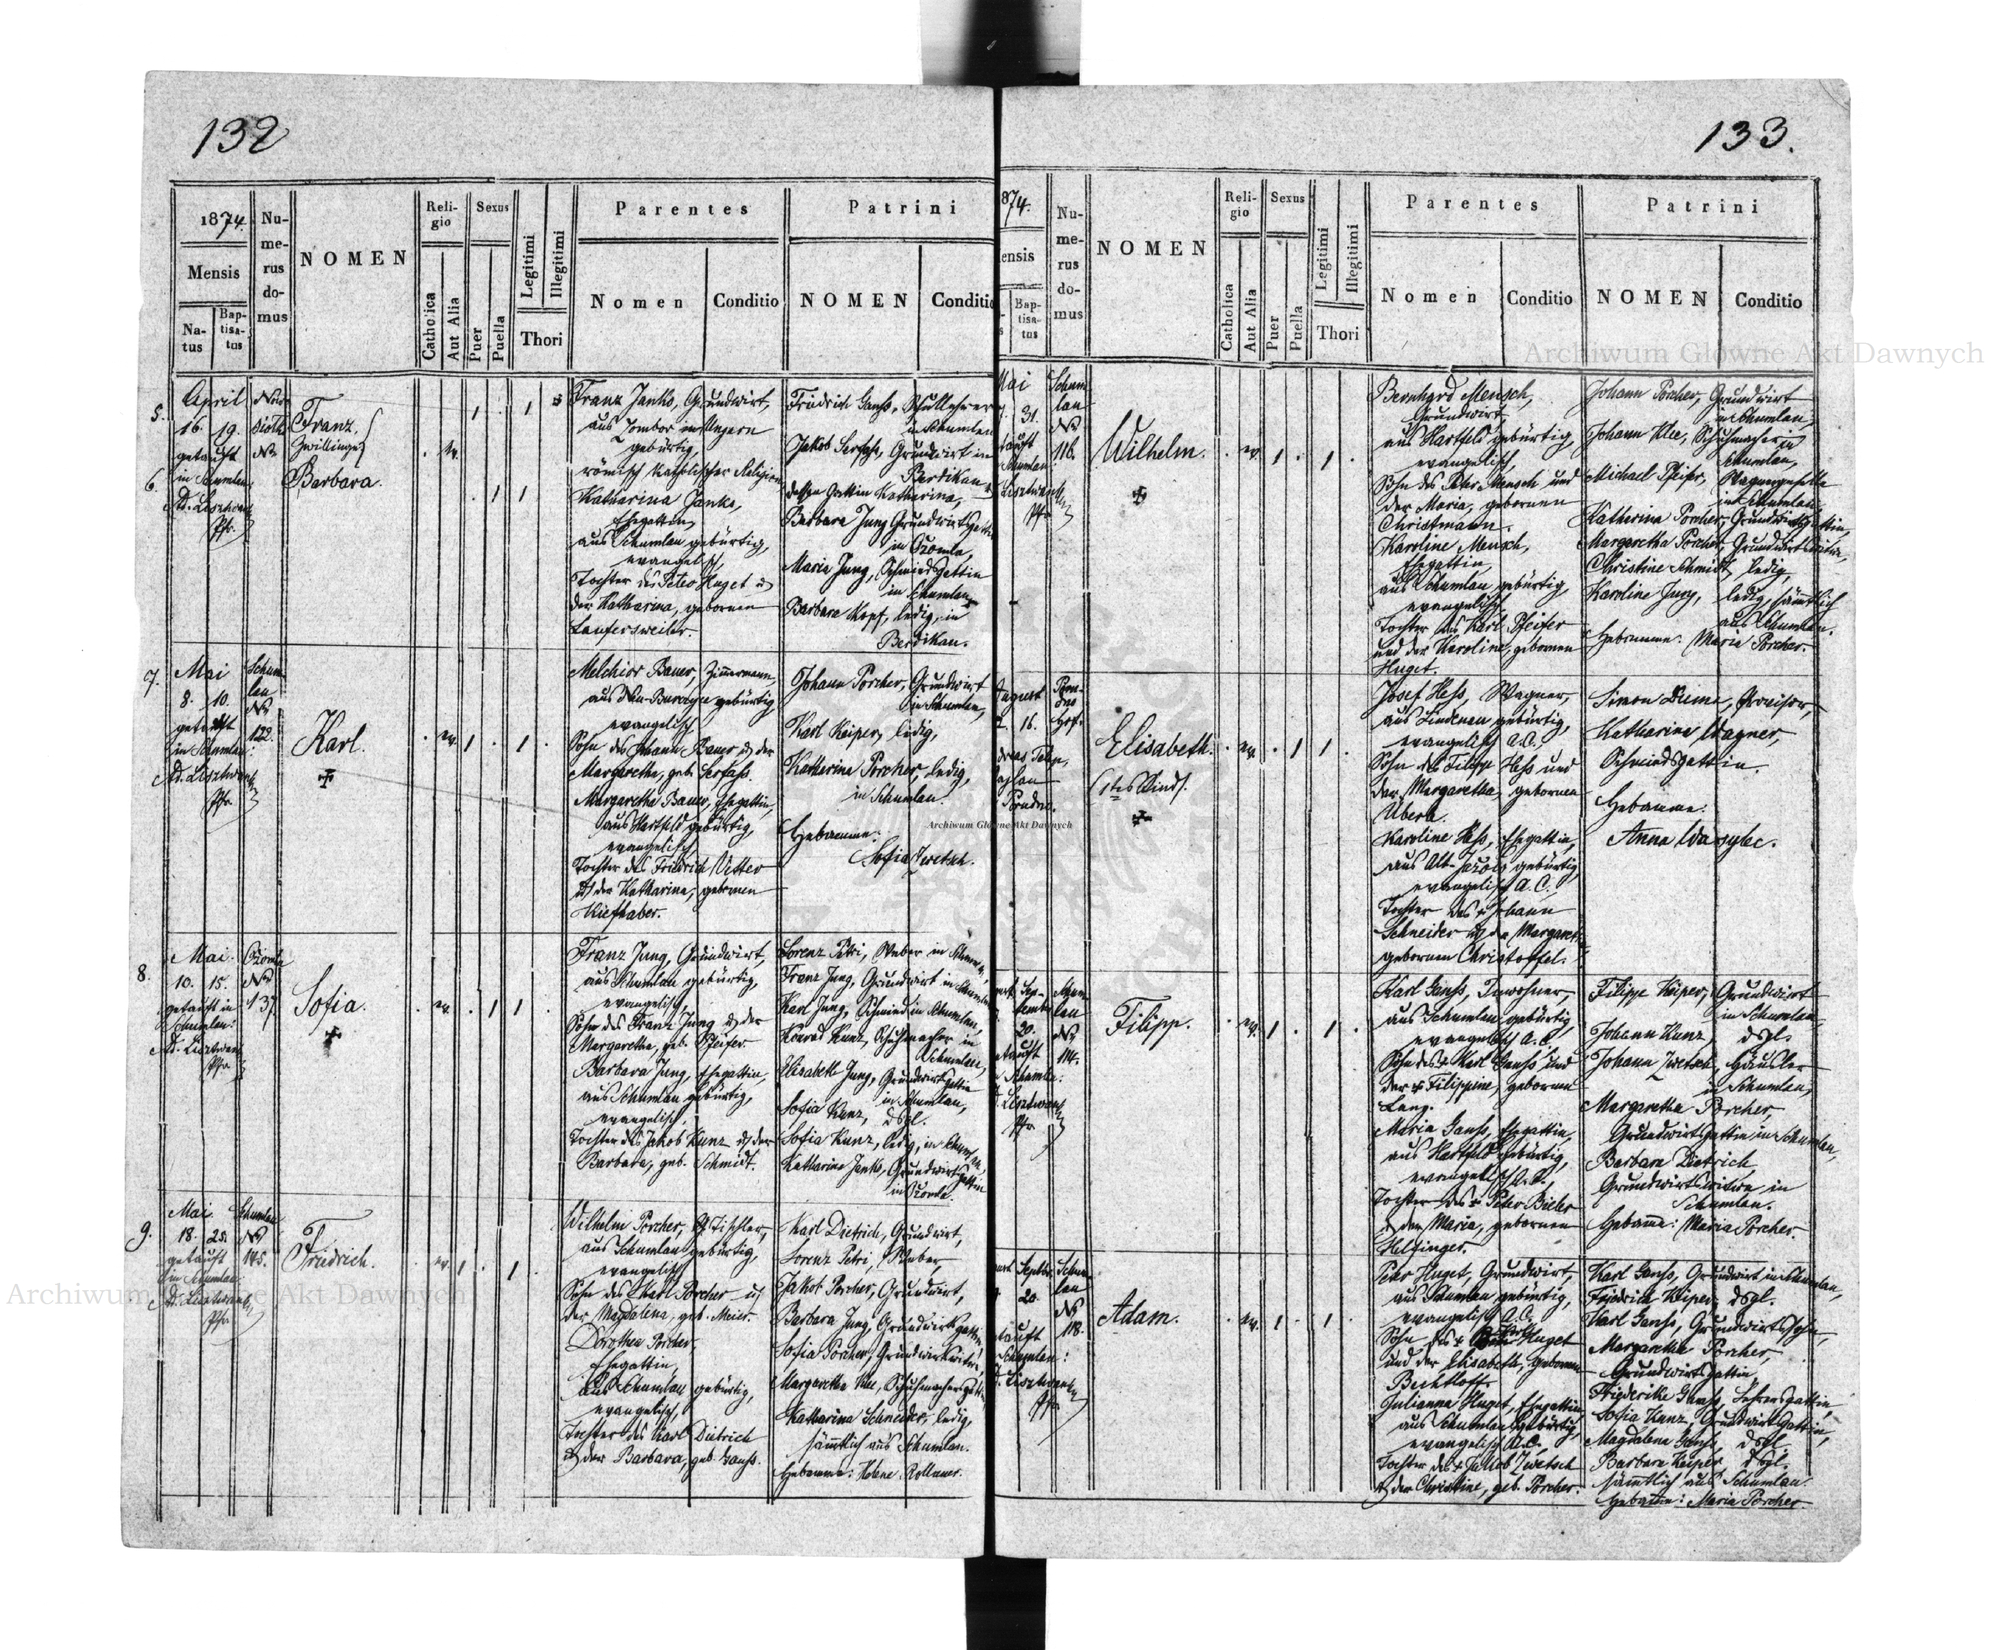 132
1874.
Numerus domus
NOMEN
Religio
Sexus
Legitimi
Illegitimi
Parentes
Patrini
Mensis
Natus
Baptisatus
Catholica
Aut Alia
Puer
Puella
Thori
Nomen
Conditio
NOMEN
Conditio
5.
April
16. 19.
getauft
in Schumlau
Pfr.
6.
Franz.
Zwillinge
Barbara.
ev.
1 1
1 1
Franz Janko, Grundwirt,
aus Zombor in Ungarn
gebürtig,
römisch katholischer Religion
Katharina Janko,
Ehegattin,
aus Schumlau gebürtig,
evangelisch,
Tochter des Peter Huget u.
der Katharina, gebornen
Laufersweiler.
Friedrich Ganß, Schullehrer
in Schumlau
Jakob Serfaß, Grundwirt in
Berdikau
dessen Gattin Katharina,
Barbara Jung Grundwirtsgattin
in Czomla,
Maria Jung, Schmiedsgattin
in Schumlau,
Barbara Kopf, ledig, in
Berdikau.
7.
Mai
8. 10.
getauft
in Schumlau:
Pfr.
Schumlau
No
122.
Karl.
ev.
1 1
Melchior Bauer, Zimmermann,
gebürtig
evangelisch
Sohn des Johann Bauer u. der
Margaretha, geb. Serfaß.
Margaretha Bauer, Ehegattin,
aus Hartfeld gebürtig,
evangelisch
Tochter des Friedrich Vetter
u. der Katharina, gebornen
Kiefhaber.
Johann Porcher, Grundwirt
in Schumlau,
Karl Keiper, ledig,
Katharina Porcher, ledig,
in Schumlau.
Hebamme:
Sofia Zwetsch.
8.
Mai
10. 15.
getauft in
Schumlau:
Pfr.
Czomla
No
137.
Sofia.
ev.
1 1
Franz Jung, Grundwirt,
aus Schumlau gebürtig,
evangelisch,
Sohn des Franz Jung u. der
Margaretha, geb. Pfeifer
Barbara Jung, Ehegattin,
aus Schumlau gebürtig,
evangelisch,
Tochter des Jakob Kunz u. der
Barbara, geb. Schmidt.
Lorenz Petri, Weber in Schumlau,
Franz Jung, Grundwirt in Schumlau
Karl Jung, Schmied in Schumlau,
Konrad Kunz, Schuhmacher in
Schumlau,
Elisabeth Jung, Grundwirtsgattin
in Schumlau,
Sofia Kunz, dsgl.
Sofia Kunz, ledig, in Schumlau,
Katharina Janko, Grundwirtsgattin
in Czomla.
9.
Mai
18. 25.
getauft
in Schumlau:
Pfr.
Schumlau
No
145.
Friedrich.
ev.
1 1
Wilhelm Porcher, Tischler,
aus Schumlau gebürtig,
evangelisch
Sohn des Karl Porcher u.
der Magdalena, geb. Meier.
Dorothea Porcher,
Ehegattin,
aus Schumlau gebürtig,
evangelisch,
Tochter des Karl Dietrich
u. der Barbara, geb. Ganß.
Karl Dietrich, Grundwirt,
Lorenz Petri, Weber,
Jakob Porcher, Grundwirt,
Barbara Jung, Grundwirtsgattin,
Sofia Porcher, Grundwirtswitwe,
Margaretha Klee, Schuhmachersgattin,
Katharina Schneider, ledig,
sämmtlich aus Schumlau.
Hebamme: Helene
133.
1874.
Mensis
Baptisatus
Numerus domus
NOMEN
Religio
Sexus
Legitimi
Illegitimi
Parentes
Patrini
Catholica
Aut Alia
Puer
Puella
Thori
Nomen
Conditio
NOMEN
Conditio
Mai
31.
Pfr.
Schumlau
No
116.
Wilhelm.
ev.
1 1
Bernhard Mensch,
Grundwirt,
aus Hartfeld gebürtig,
evangelisch,
Sohn des Peter Mensch und
der Maria, gebornen
Christmann.
Karoline Mensch,
Ehegattin,
aus Schumlau gebürtig,
evangelisch,
Tochter des Karl Pfeifer
und der Karoline, gebornen
Huget.
Johann Porcher, Grundwirt
in Schumlau,
Johann Klee, Schuhmacher in
Schumlau,
Michael Pfeifer, Wagnergeselle
in Schumlau,
Katharina Porcher, Grundwirtsgattin,
Margaretha Porcher, Grundwirtswitwe,
Christine Schmidt, ledig,
Karoline Jung, ledig, sämtlich
aus Schumlau.
Hebamme: Maria Porcher.
August
16.
Elisabeth.
ev.
1 1
Josef Heß, Wagner,
aus Lindenau gebürtig,
evangelisch A.C.,
Sohn des Filipp Heß und
der Margaretha, gebornen
Karoline Heß, Ehegattin,
gebürtig,
evangelisch A.C.,
Tochter des Johann
Schneider u. der Margaretha
gebornen Christoffel.
Simon Diem, Provisor,
Katharina Wagner,
Schmiedsgattin.
Hebamme:
Anna Wasylec.
September
20.
Schumlau
No
114.
Pfr.
Filipp.
ev.
1 1
Karl Ganß, Inwohner,
aus Schumlau gebürtig,
evangelisch A.C.
Sohn des Karl Ganß und
der Filippine, gebornen
Lang.
Maria Ganß, Ehegattin,
aus Hartfeld gebürtig,
evangelisch A.C.,
Tochter des Peter Bieler
u. der Maria, gebornen
Helfinger.
Filipp Keiper, Grundwirt
in Schumlau,
Johann Kunz, dsgl.
Johann Zwetsch, Häusler
in Schumlau,
Margaretha Porcher,
Grundwirtsgattin in Schumlau,
Barbara Dietrich,
Grundwirtswitwe in
Schumlau.
Hebamme: Maria Porcher.
Septbr
20.
Schumlau
No
118.
Pfr.
Adam.
ev.
1 1
Peter Huget, Grundwirt,
aus Schumlau gebürtig,
evangelisch A.C.
Sohn des Huget
und der Elisabeth, gebornen
Bechtloff.
Julianna Huget, Ehegattin,
aus Schumlau gebürtig,
evangelisch A.C.
Tochter des Jakob Zwetsch
u. der Christine, geb. Porcher.
Karl Ganß, Grundwirt in Schumlau,
Friedrich Keiper, dsgl.
Karl Ganß, Grundwirtssohn,
Margaretha Porcher,
Grundwirtsgattin,
Friederike Ganß, Lehrersgattin,
Sofia Kunz, Grundwirtsgattin,
Magdalena Ganß, dsgl.
Barbara Keiper, dsgl.
sämmtlich aus Schumlau.
Hebamme: Maria Porcher.
Archiwum Główne Akt Dawnych
Archiwum Główne Akt Dawnych
Archiwum Główne Akt Dawnych